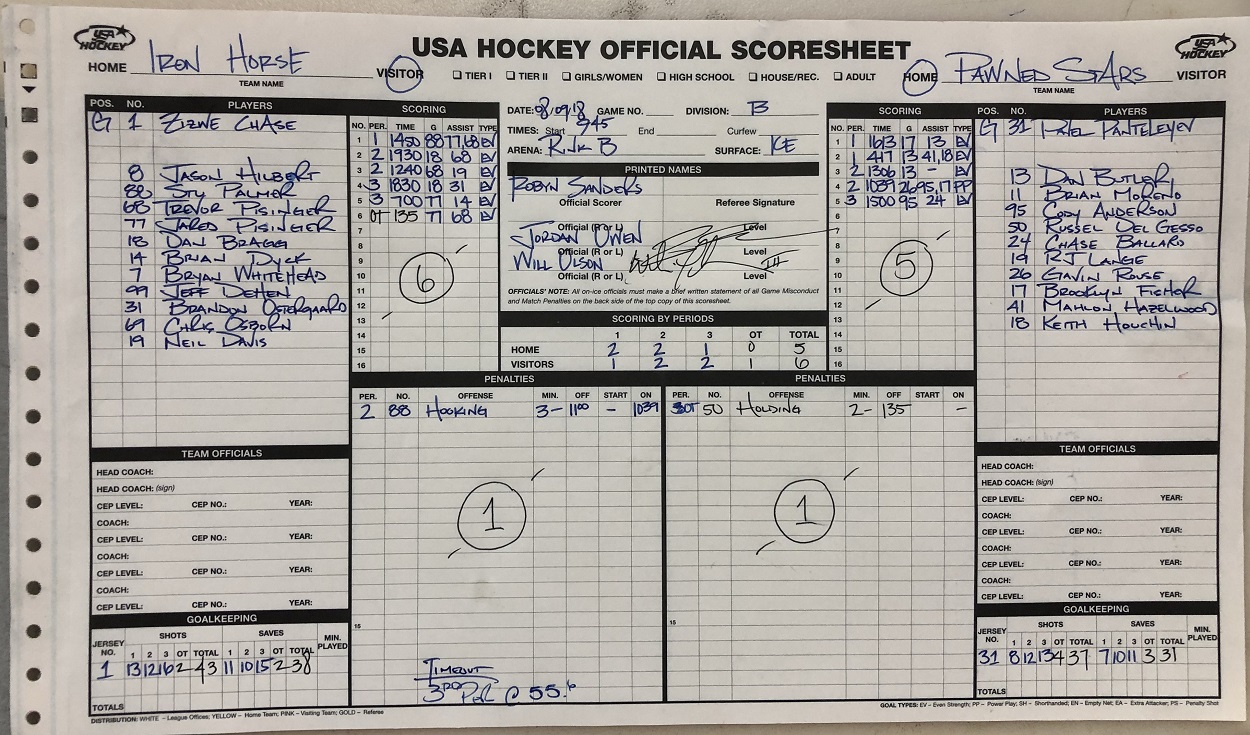 USA HOCKEY
USA HOCKEY
USA HOCKEY OFFICIAL SCORESHEET
HOME IRON HORSE VISITOR
TEAM NAME
☐ TIER I ☐ TIER II ☐ GIRLS/WOMEN ☐ HIGH SCHOOL ☐ HOUSE/REC. ☐ ADULT
HOME PAWNED STARS VISITOR
TEAM NAME
POS. NO. PLAYERS
G 1 ZIZWE CHASE
8 JASON HILBERT
88 STU PALMER
68 TREVOR PISINGER
77 JARED PISINGER
18 DAN BRAGG
14 BRIAN DYCK
7 BRYAN WHITEHEAD
99 JEFF DEHEN
31 BRANDON OSTERGAARD
69 CHRIS OSBORN
19 NEIL DAVIS
SCORING
NO. PER. TIME G ASSIST TYPE
1 1 1450 88 77,68 EV
2 2 1930 18 68 EV
3 2 1240 68 19 EV
4 3 1830 18 31 EV
5 3 700 77 14 EV
6 OT 135 77 68 EV
7
8
9
10
11
12
13
14
15
16
6
DATE: 08/09/18 GAME NO. DIVISION: B
TIMES: Start 945 End Curfew
ARENA: RINK B SURFACE: ICE
PRINTED NAMES
ROBYN SANDERS
Official Scorer Referee Signature
Official (R or L) Level
JORDAN OWEN
Official (R or L) Level
WILL OLSON III
Official (R or L) Level
OFFICIALS' NOTE: All on-ice officials must make a brief written statement of all Game Misconduct
and Match Penalties on the back side of the top copy of this scoresheet.
SCORING BY PERIODS
1 2 3 OT TOTAL
HOME 2 2 1 0 5
VISITORS 1 2 2 1 6
SCORING
NO. PER. TIME G ASSIST TYPE
1 1 1613 17 13 EV
2 1 417 13 41,18 EV
3 2 1306 13 - EV
4 2 1039 26 95,17 PP
5 3 1500 95 24 EV
6
7
8
9
10
11
12
13
14
15
16
5
POS. NO. PLAYERS
G 31 PANTELEYEV
13 DAN BUTLER
11 BRIAN MORENO
95 CODY ANDERSON
50 RUSSEL DEL GESSO
24 CHASE BALLARD
19 RJ LANGE
26 GAVIN ROUSE
17 BROOKLYN FISHER
41 MAHLON HAZELWOOD
18 KEITH HOUCHIN
PENALTIES
PER. NO. OFFENSE MIN. OFF START ON
2 88 HOOKING 3- 1100 - 1039
1
15
TIMEOUT
3RD PER @ 55.6
PENALTIES
PER. NO. OFFENSE MIN. OFF START ON
OT 50 HOLDING 2- 135 -
1
15
TEAM OFFICIALS
HEAD COACH:
HEAD COACH: (sign)
CEP LEVEL: CEP NO.: YEAR:
COACH:
CEP LEVEL: CEP NO.: YEAR:
COACH:
CEP LEVEL: CEP NO.: YEAR:
COACH:
CEP LEVEL: CEP NO.: YEAR:
GOALKEEPING
JERSEY NO. SHOTS SAVES MIN. PLAYED
1 2 3 OT TOTAL 1 2 3 OT TOTAL
1 13 12 16 2 43 11 10 15 2 38
TOTALS
TEAM OFFICIALS
HEAD COACH:
HEAD COACH: (sign)
CEP LEVEL: CEP NO.: YEAR:
COACH:
CEP LEVEL: CEP NO.: YEAR:
COACH:
CEP LEVEL: CEP NO.: YEAR:
COACH:
CEP LEVEL: CEP NO.: YEAR:
GOALKEEPING
JERSEY NO. SHOTS SAVES MIN. PLAYED
1 2 3 OT TOTAL 1 2 3 OT TOTAL
31 8 12 13 4 37 7 10 11 3 31
TOTALS
DISTRIBUTION: WHITE – League Offices; YELLOW – Home Team; PINK – Visiting Team; GOLD – Referee
GOAL TYPES: EV – Even Strength; PP – Power Play; SH – Shorthanded; EN – Empty Net; EA – Extra Attacker; PS – Penalty Shot